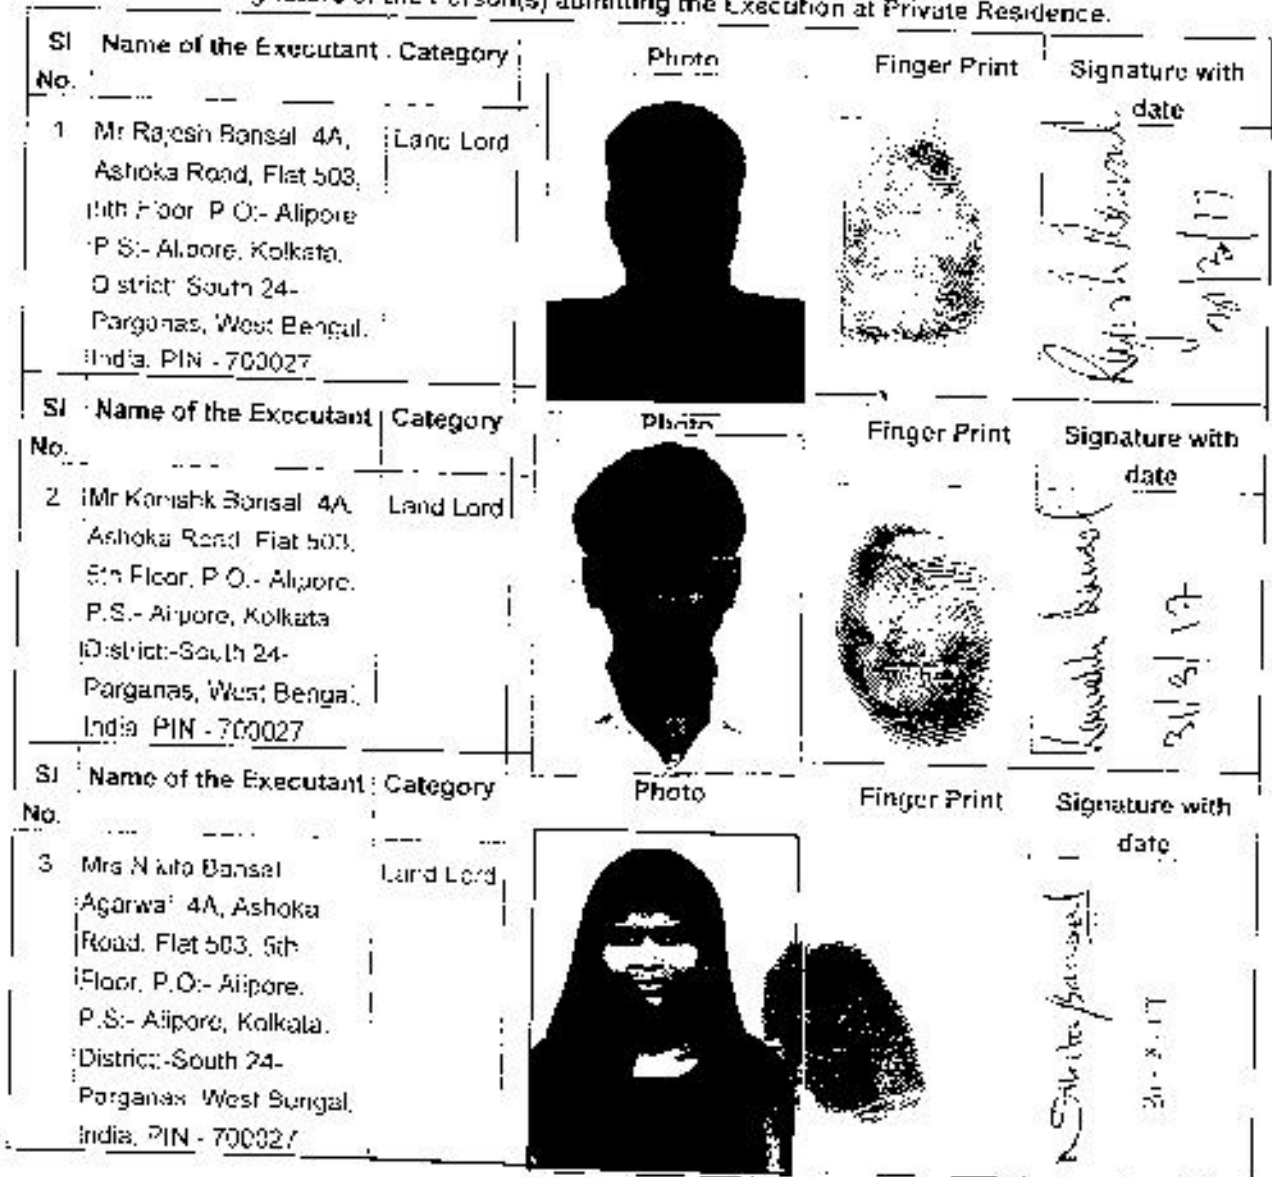 Signature of the Person(s) admitting the Execution at Private Residence.
Sl No. Name of the Executant Category Photo Finger Print Signature with date
1 Mr Rajesh Bansal 4A, Land Lord
Ashoka Road, Flat 503,
5th Floor, P.O:- Alipore
P.S:- Alipore, Kolkata,
District:-South 24-
Parganas, West Bengal,
India, PIN - 700027
Sl No. Name of the Executant Category Photo Finger Print Signature with date
2 Mr Kanishk Bansal 4A, Land Lord
Ashoka Road, Flat 503,
5th Floor, P.O:- Alipore,
P.S:- Alipore, Kolkata
District:-South 24-
Parganas, West Bengal,
India, PIN - 700027
31/3/17
Sl No. Name of the Executant Category Photo Finger Print Signature with date
3 Mrs Nikita Bansal Land Lord
Agarwal 4A, Ashoka
Road, Flat 503, 5th
Floor, P.O:- Alipore,
P.S:- Alipore, Kolkata,
District:-South 24-
Parganas, West Bengal,
India, PIN - 700027
Nikita Bansal